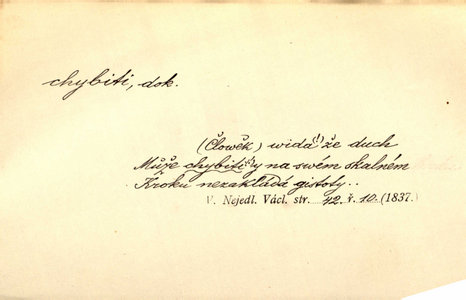 chybiti, dok.
(Člowěk) wida (!) že duch
Může chybiti by na swém skalném
Kroku nezakládá gistoty..
V. Nejedl. Václ. str. 42. ř. 10. (1837.)